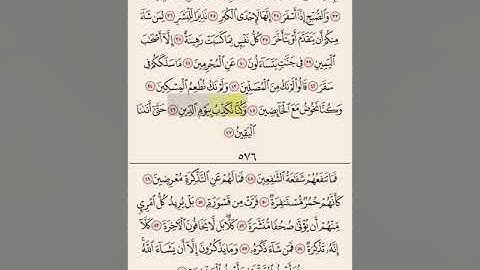 وَٱلصُّبْحِ إِذَآ أَسْفَرَ ٣٤ إِنَّهَا لَإِحْدَى ٱلْكُبَرِ ٣٥ نَذِيرًا لِّلْبَشَرِ ٣٦ لِمَن شَآءَ
مِنكُمْ أَن يَتَقَدَّمَ أَوْ يَتَأَخَّرَ ٣٧ كُلُّ نَفْسٍۭ بِمَا كَسَبَتْ رَهِينَةٌ ٣٨ إِلَّآ أَصْحَٰبَ
ٱلْيَمِينِ ٣٩ فِى جَنَّٰتٍ يَتَسَآءَلُونَ ٤٠ عَنِ ٱلْمُجْرِمِينَ ٤١ مَا سَلَكَكُمْ فِى
سَقَرَ ٤٢ قَالُوا۟ لَمْ نَكُ مِنَ ٱلْمُصَلِّينَ ٤٣ وَلَمْ نَكُ نُطْعِمُ ٱلْمِسْكِينَ ٤٤
وَكُنَّا نَخُوضُ مَعَ ٱلْخَآئِضِينَ ٤٥ وَكُنَّا نُكَذِّبُ بِيَوْمِ ٱلدِّينِ ٤٦ حَتَّىٰٓ أَتَىٰنَا
ٱلْيَقِينُ ٤٧
٥٧٦
فَمَا تَنفَعُهُمْ شَفَٰعَةُ ٱلشَّٰفِعِينَ ٤٨ فَمَا لَهُمْ عَنِ ٱلتَّذْكِرَةِ مُعْرِضِينَ ٤٩
كَأَنَّهُمْ حُمُرٌ مُّسْتَنفِرَةٌ ٥٠ فَرَّتْ مِن قَسْوَرَةٍۭ ٥١ بَلْ يُرِيدُ كُلُّ ٱمْرِئٍ
مِّنْهُمْ أَن يُؤْتَىٰ صُحُفًا مُّنَشَّرَةً ٥٢ كَلَّا بَل لَّا يَخَافُونَ ٱلْءَاخِرَةَ ٥٣ كَلَّآ
إِنَّهُۥ تَذْكِرَةٌ ٥٤ فَمَن شَآءَ ذَكَرَهُۥ ٥٥ وَمَا يَذْكُرُونَ إِلَّآ أَن يَشَآءَ ٱللَّهُ